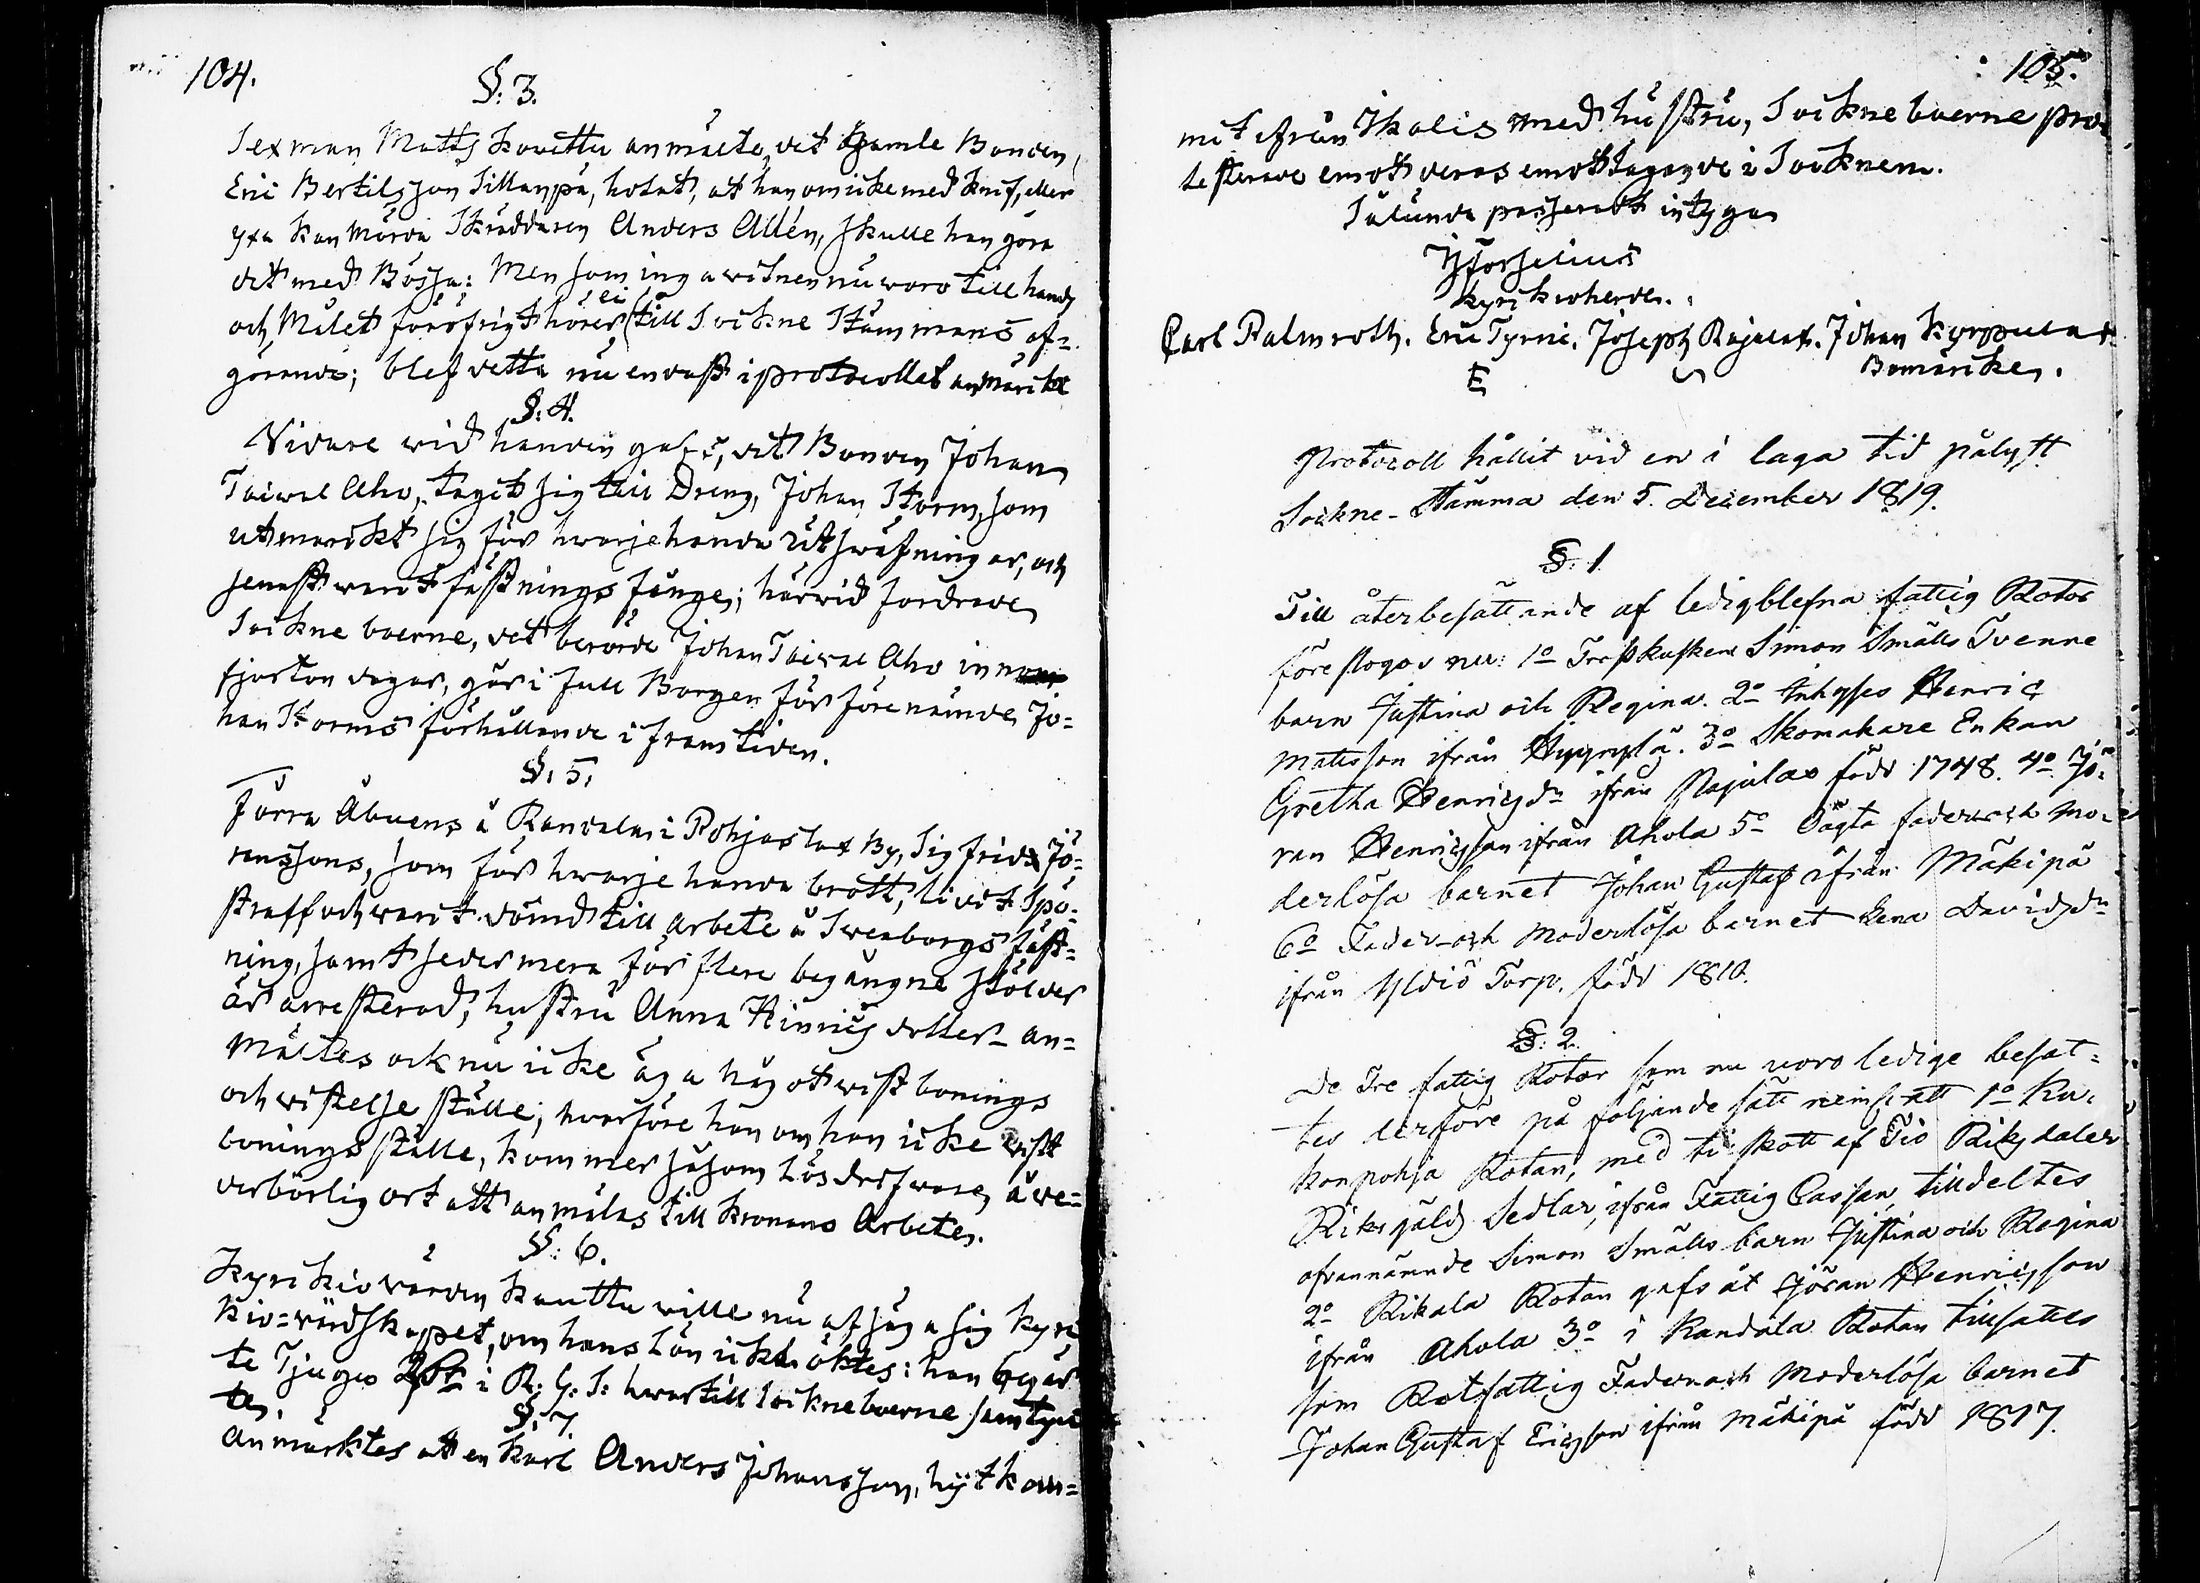 104.
§: 3.
Sexman Matts Kouttu anmälte, det Gamle Bonden,
Eric Bertilsson Sillanpä, hotat, at han om icke med knif, eller
yxa kan mörda Skräddaren Anders Allén, skulle han göra
det med Bössa: Men som inga witnen nu woro till hands
och Målet föröfrigt hörer ei till Sockne Stämmans af-
görande; blef detta nu endast i protocollet anmärkt
§: 4.
Vidare wid handen gafs, det Bonden Johan
Taiwal Aho, tagit sig till Dreng, Johan Storm, som
utmärkt sig för hwarjehanda utswäfningar, och
senast warit fästnings fånge; härwid fordrade
Sockneboerne, det berörde Johan Taiwal Aho innom
fjorton dagar, går i full Borgen för förenämnde Jo-
han Storms förhållande i framtiden.
§: 5:
Förra Åbuens å Randala i Pohjaslax By, Sigfrid Jö-
ranssons, som för hwarje handa brott, lidit Spö-
straff och warit dömd till arbete å Sweaborgs fäst-
ning, samt sedermera för flere begångne stölder
är arresterad, hustru Anna Hinrics dotter an-
mältes ock nu icke äga något wist bonings
och wistelse ställe; hwarföre hon om hon icke wist
bonings ställe, kommer såsom Lösdrifware, å we-
derbörlig ort att anmälas till Kronans Arbete.
§: 6.
Kyrkiowärden Kauttu wille nu afsäga sig Kyr-
kio-wärdskapet, om hans Lön icke öktes: han begär
te Tjugo i R: G: S: hwartill Sockneboerne samtyck
te.
§: 7.
Anmärktes att en Karl Anders Johansson, hit kom-
105.
mit ifrån Ikalis med hustru, Sockneboerne pro-
testerade emot deras emottagande i Socknen.
Sålunda passeradt intygar
J Forselius
Kyrkioherde.
Carl Palmroth. Eric Tyrni. Joseph Rajalax. Johan Kyrpula
E Bomärken.
Protocoll hållit vid en i laga tid pålyst
Sockne-Stämma den 5. December 1819.
§: 1
Till återbesättande af ledigblefna fattig Rotor
föreslogos nu: 1o Trosskusken Simon Smålls Tvenne
barn Justina och Regina. 2o Inhyses Henric
Matsson ifrån. 3o Skomakare Enkan
Gretha Henricsdr ifrån Rajalax född 1748. 4o Jö-
ran Henricsson ifrån Ahola 5o Oägta fader och mo-
derlösa barnet Johan Gustaf ifrån Mäkipä
6o Fader- och Moderlösa barnet Lena Davidsdr
ifrån Yldiö Torp, född 1810.
§: 2.
De Tre fattig Rotor som nu voro ledige besat-
tes derföre på följande sätt nemsl. att 1o Ku-
konpohja Rotan, med tilskott af Tio Riksdaler
Riksgälds Sedlar, ifrån Fattig Cassan, tilldeltes
ofvannämnde Simon Smålls barn Justina och Regina
2o Rikala Rotan gafs åt Jöran Henricsson
ifrån Ahola 3o i Randala Rotan tillsattes
som Rotfattig Fader och Moderlösa barnet
Johan Gustaf Ericsson ifrån Mäkipä född 1817.